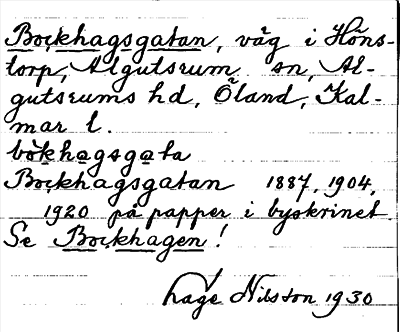 Bockhagsgatan, väg i Höns-
torp, Algutsrum sn, Al-
gutsrums hd, Öland, Kal-
mar l.
bòkhagsgata
Bockhagsgatan 1887, 1904,
1920 på papper i byskrinet.
Se Bockhagen!
Lage Nilsson 1930